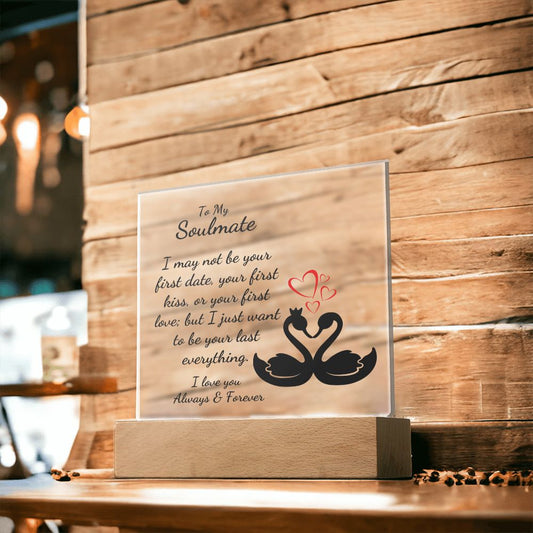 To My
Soulmate
I may not be your
first date, your first
kiss, or your first
love; but I just want
to be your last
everything.
I love you
Always & Forever